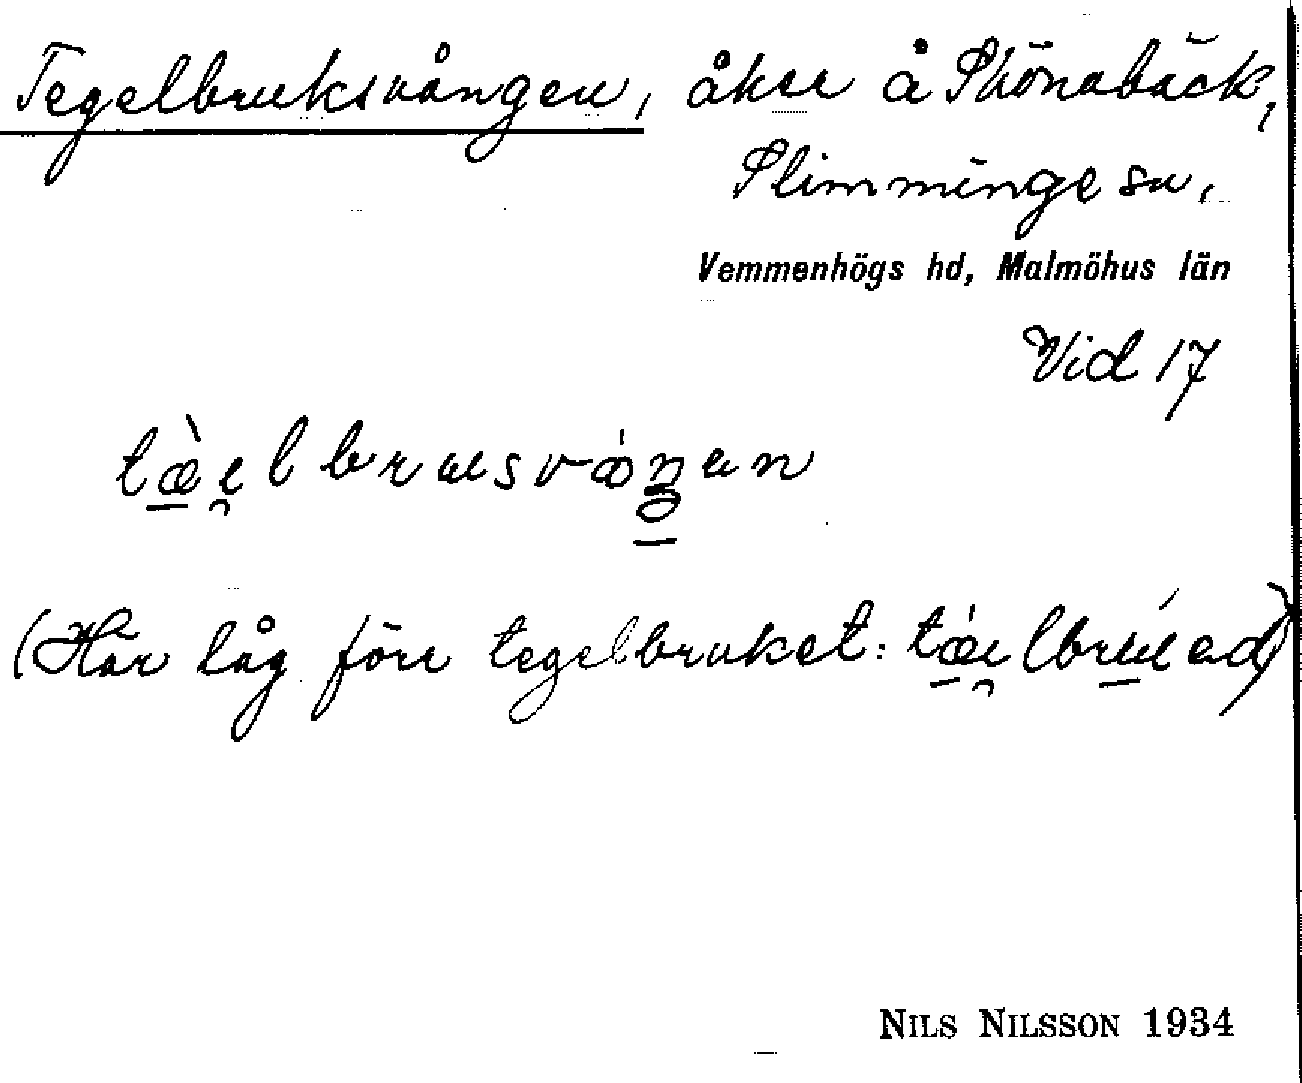 Tegelbruksvången, åker å Skönabäck,
Slimminge sn,
Vemmenhögs hd, Malmöhus län
Vid 17
tæ̀e̯lbrusvåŋan
(Här låg förr tegelbruket: tǽe̯lbrúed)
NILS NILSSON 1934